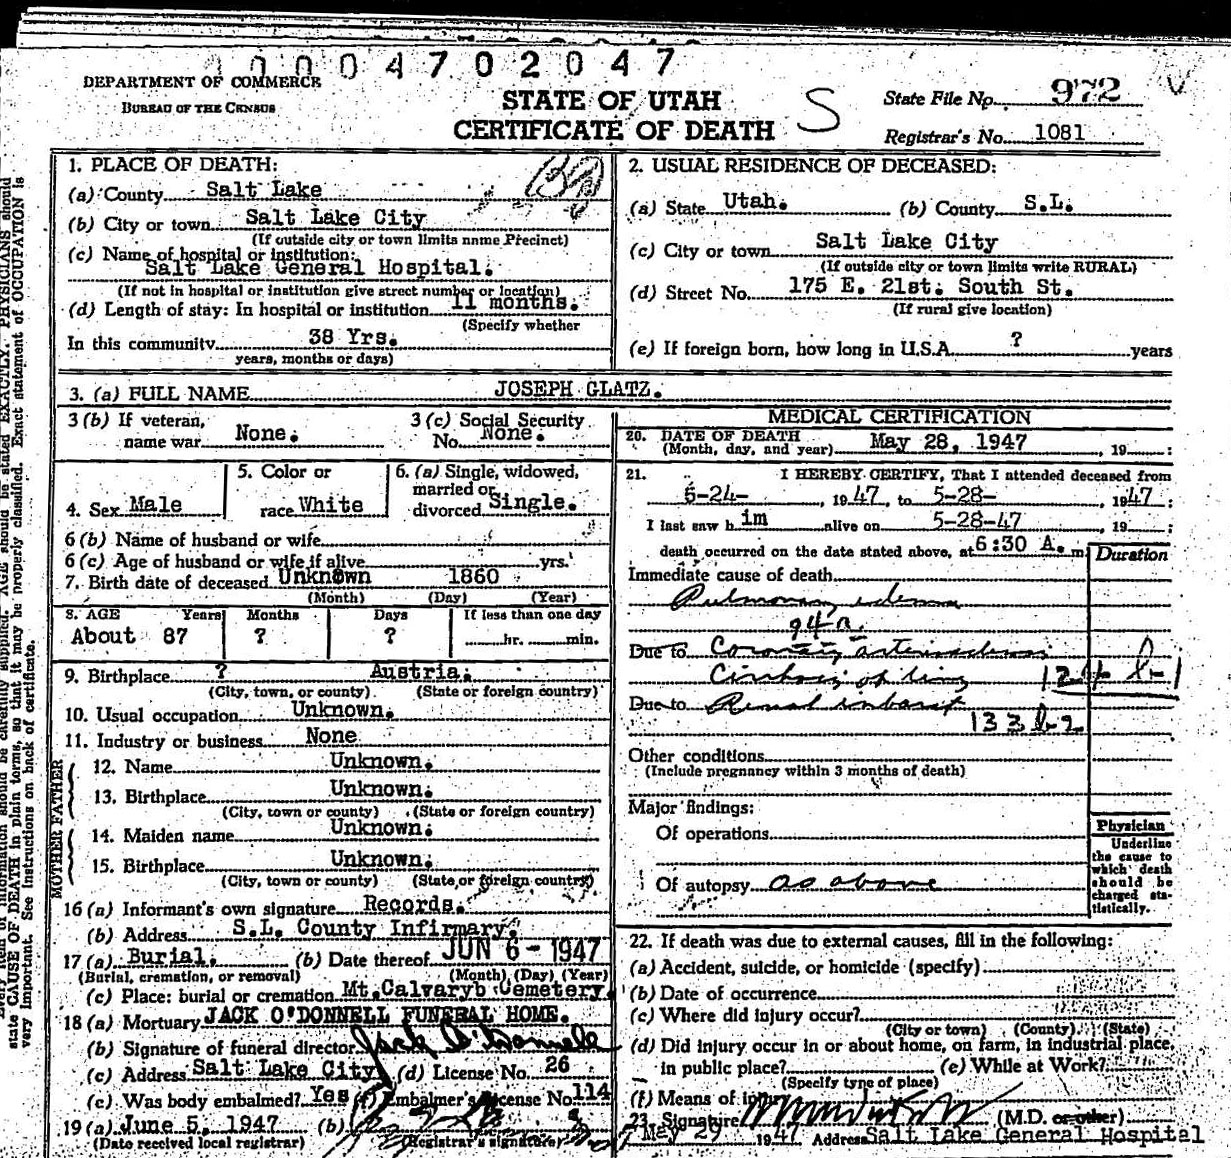 0004702047
DEPARTMENT OF COMMERCE
BUREAU OF THE CENSUS
STATE OF UTAH
CERTIFICATE OF DEATH
S
State File No. 972
Registrar's No. 1081
1. PLACE OF DEATH:
(a) County Salt Lake
(b) City or town Salt Lake City
(If outside city or town limits name Precinct)
(c) Name of hospital or institution:
Salt Lake General Hospital.
(If not in hospital or institution give street number or location)
(d) Length of stay: In hospital or institution 11 months.
(Specify whether
In this community 38 Yrs.
years, months or days)
2. USUAL RESIDENCE OF DECEASED:
(a) State Utah. (b) County S.L.
(c) City or town Salt Lake City
(If outside city or town limits write RURAL)
(d) Street No. 175 E. 21st. South St.
(If rural give location)
(e) If foreign born, how long in U.S.A. ? years
3. (a) FULL NAME JOSEPH GLATZ.
3 (b) If veteran,
name war None.
3 (c) Social Security
No. None.
4. Sex Male
5. Color or
race White
6. (a) Single, widowed,
married or
divorced Single.
6 (b) Name of husband or wife
6 (c) Age of husband or wife if alive yrs.
7. Birth date of deceased Unknown 1860
(Month) (Day) (Year)
8. AGE Years Months Days If less than one day
About 87 ? ? hr. min.
9. Birthplace ? Austria.
(City, town, or county) (State or foreign country)
10. Usual occupation Unknown.
11. Industry or business None
FATHER
12. Name Unknown.
13. Birthplace Unknown.
(City, town or county) (State or foreign country)
MOTHER
14. Maiden name Unknown.
15. Birthplace Unknown.
(City, town or county) (State or foreign country)
16 (a) Informant's own signature Records.
(b) Address S.L. County Infirmary.
17 (a) Burial. (b) Date thereof JUN 6 - 1947
(Burial, cremation, or removal) (Month) (Day) (Year)
(c) Place: burial or cremation Mt.Calvaryb Cemetery.
18 (a) Mortuary JACK O'DONNELL FUNERAL HOME.
(b) Signature of funeral director Jack O'Donnell
(c) Address Salt Lake City (d) License No. 26
(e) Was body embalmed? Yes (f) Embalmer's License No. 114
19 (a) June 5, 1947 (b)
(Date received local registrar) (Registrar's signature)
MEDICAL CERTIFICATION
20. DATE OF DEATH
(Month, day, and year) May 28, 1947 , 19 :
21. I HEREBY CERTIFY, That I attended deceased from
6-24- , 1947, to 5-28- , 1947;
I last saw him alive on 5-28-47 , 19 ;
death occurred on the date stated above, at 6:30 A. m.
Duration
Immediate cause of death
Pulmonary edema
94a
Due to Coronary arteriosclerosis
Cirrhosis of liver 124 b-1
Due to Renal infarct
133 b-2
Other conditions
(Include pregnancy within 3 months of death)
Major findings:
Of operations
Of autopsy as above
Physician
Underline
the cause to
which death
should be
charged sta-
tistically.
22. If death was due to external causes, fill in the following:
(a) Accident, suicide, or homicide (specify)
(b) Date of occurrence
(c) Where did injury occur?
(City or town) (County) (State)
(d) Did injury occur in or about home, on farm, in industrial place,
in public place? (e) While at Work?
(Specify type of place)
(f) Means of injury
23. Signature (M.D. or other)
May 29 1947 Address Salt Lake General Hospital